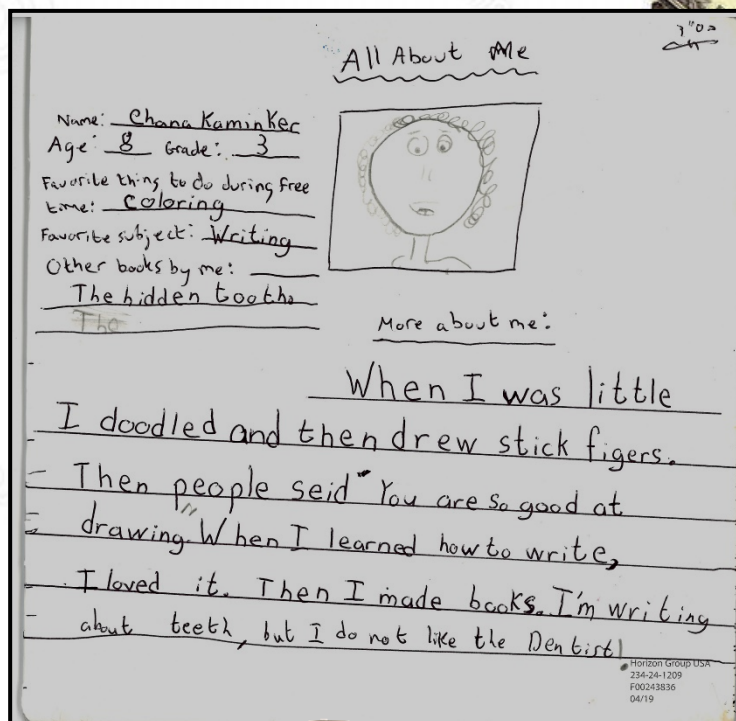 ב"ה
All About Me
Name: Chana Kaminker
Age: 8 Grade: 3
Favorite thing to do during free
time: Coloring
Favorite subject: Writing
Other books by me:
The hidden tooth.
The
More about me:
When I was little
I doodled and then drew stick figers.
Then people seid " You are so good at
drawing. When I learned how to write,
I loved it. Then I made books. I'm writing
about teeth, but I do not like the Dentist!
Horizon Group USA
234-24-1209
F00243836
04/19